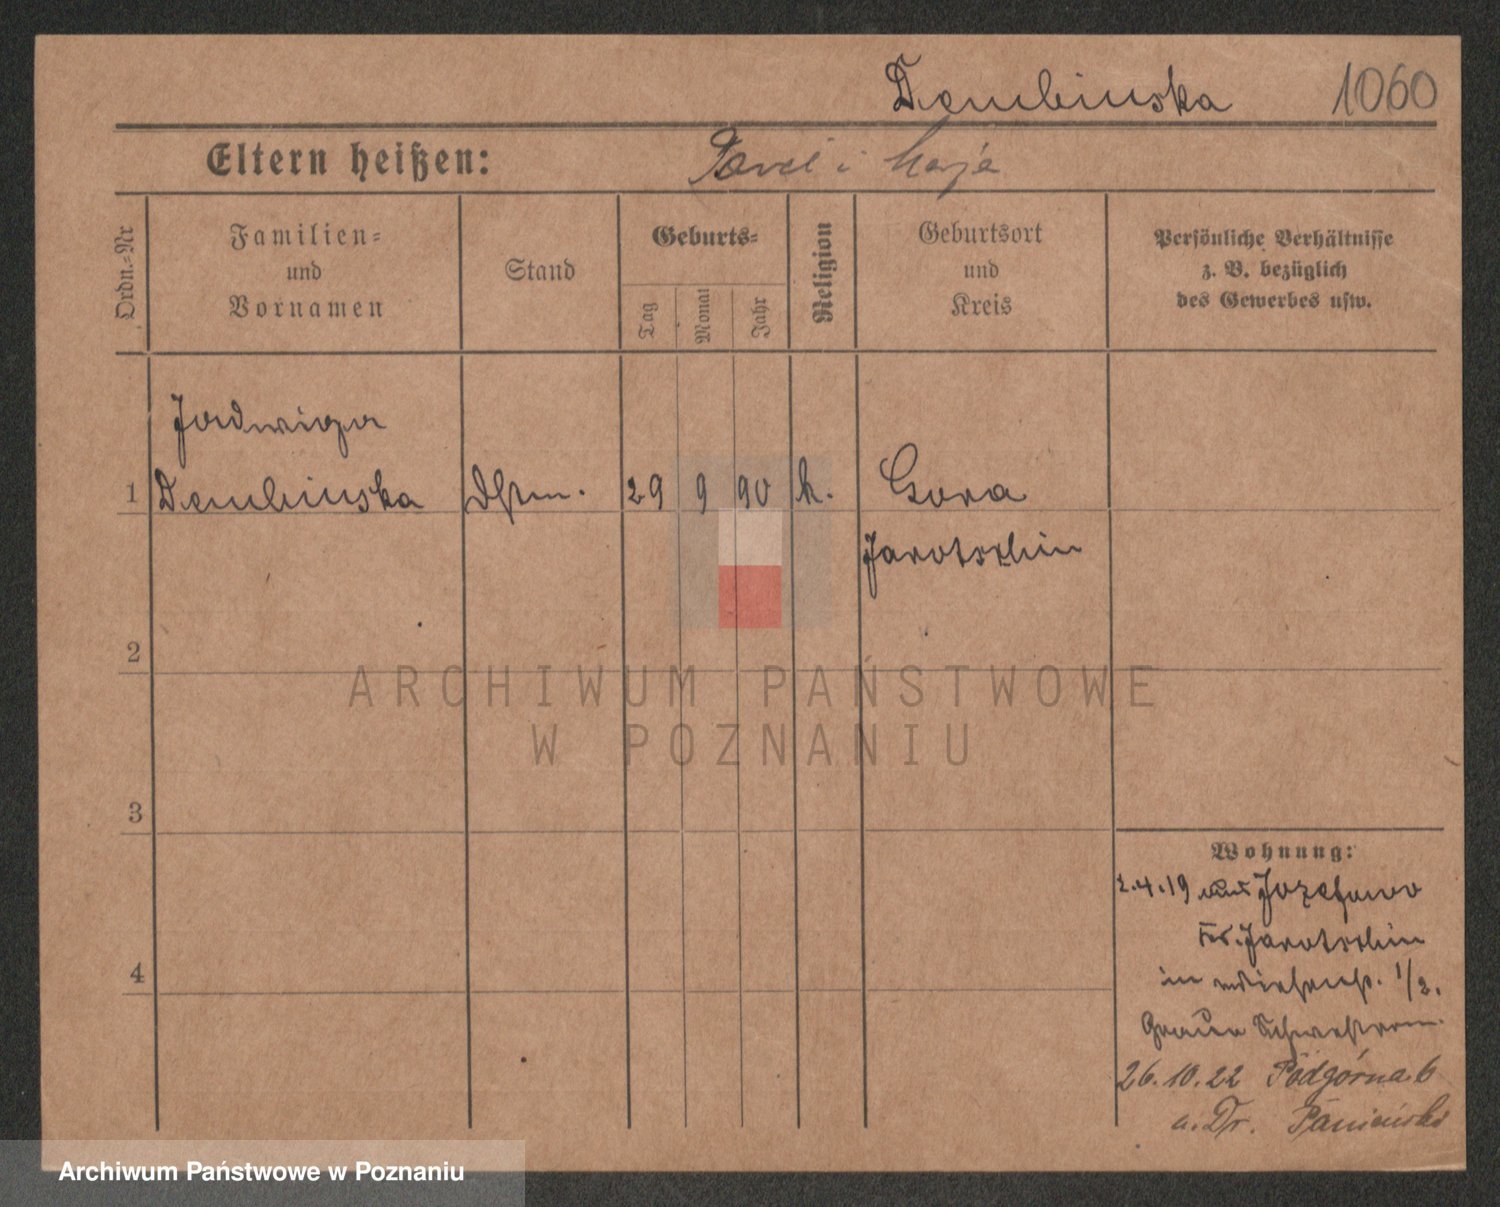 Dembinska 1060
Eltern heißen: Pavel i Marja
Ordn.-Nr
Familien-
und
Vornamen
Stand
Geburts-
Tag
Monat
Jahr
Religion
Geburtsort
und
Kreis
Persönliche Verhältnisse
z. B. bezüglich
des Gewerbes usw.
Jadwiga
1 Dembinska Dstm. 29 9 90 k. Gora
Jarotschin
2
3
4
Wohnung:
2.4.19 aus Jozefowo
Kr. Jarotschin
in 1/2.
Graue Schwestern
26.10.22 Podgórna 6
Dr.
ARCHIWUM PAŃSTWOWE
W POZNANIU
Archiwum Państwowe w Poznaniu